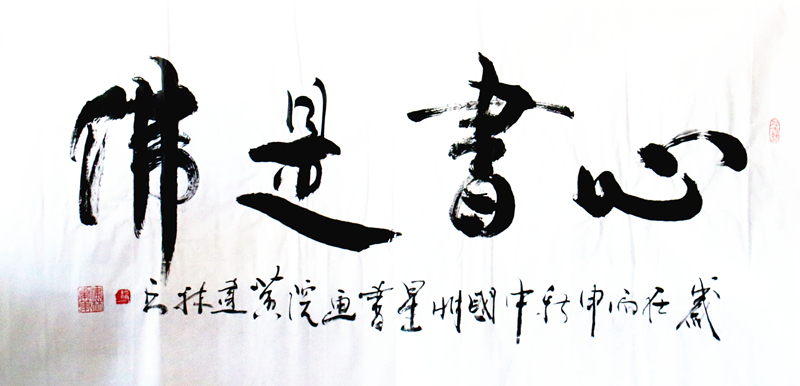 心書是佛
歲在丙申秋中國星書画院黄建林